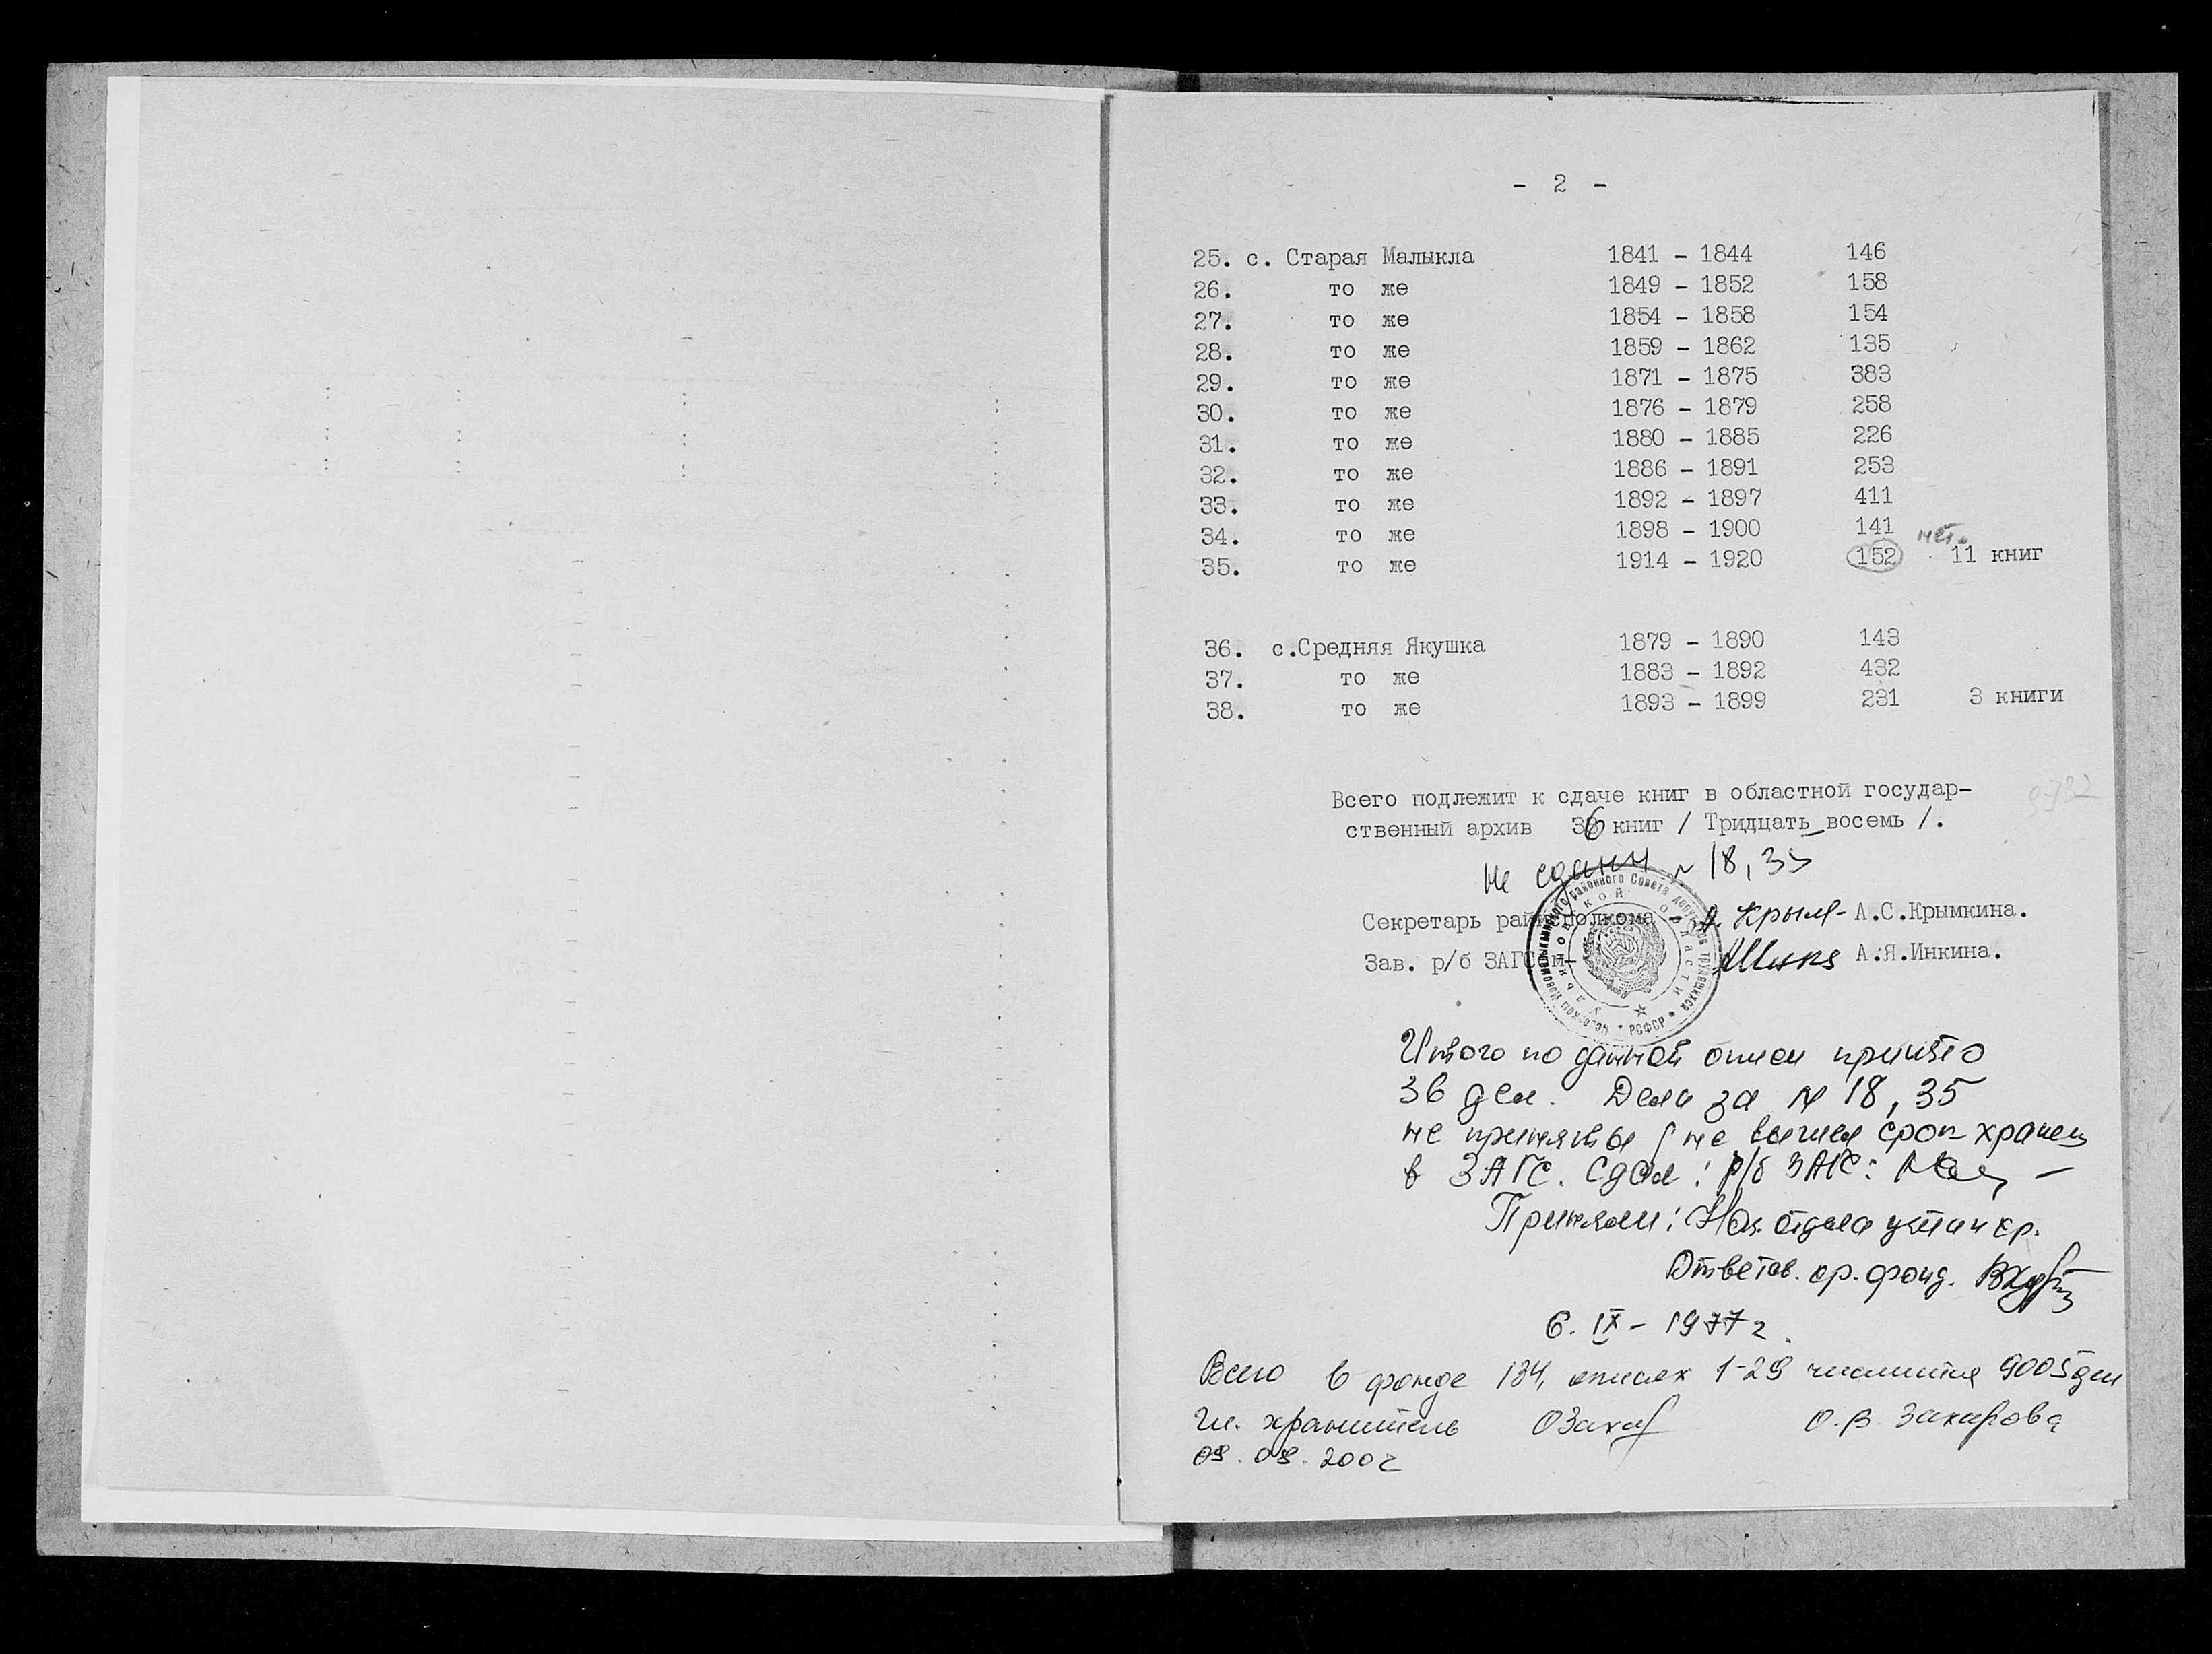 - 2 -
25. с. Старая Малыкла 1841 - 1844 146
26. то же 1849 - 1852 158
27. то же 1854 - 1858 154
28. то же 1859 - 1862 135
29. то же 1871 - 1875 383
30. то же 1876 - 1879 258
31. то же 1880 - 1885 226
32. то же 1886 - 1891 253
33. то же 1892 - 1897 411
34. то же 1898 - 1900 141
нет.
35. то же 1914 - 1920 152 11 книг
36. с.Средняя Якушка 1879 - 1890 143
37. то же 1883 - 1892 432
38. то же 1893 - 1899 231 3 книги
Всего подлежит к сдаче книг в областной государ-
ственный архив 36 книг / Тридцать восемь /.
Не сданы № 18, 35
Секретарь райисполкома - А. Крым- А.С.Крымкина.
Зав. р/б ЗАГСом- А.Я.Инкина.
районного Совета депутатов трудящихся
Ульяновской области
РСФСР
Итого по данной описи принято
36 дел. Дела за № 18, 35
не приняты / не вышел срок хранен
в ЗАГС. Сдал: р/б ЗАГС:
Приняли: Нач. отдела
Ответств. хр. фонд.
6. IX - 1977 г.
Всего в фонде 134, описях 1-29 числится 9005 дел
Гл. хранитель ОЗакир О.В. Закирова